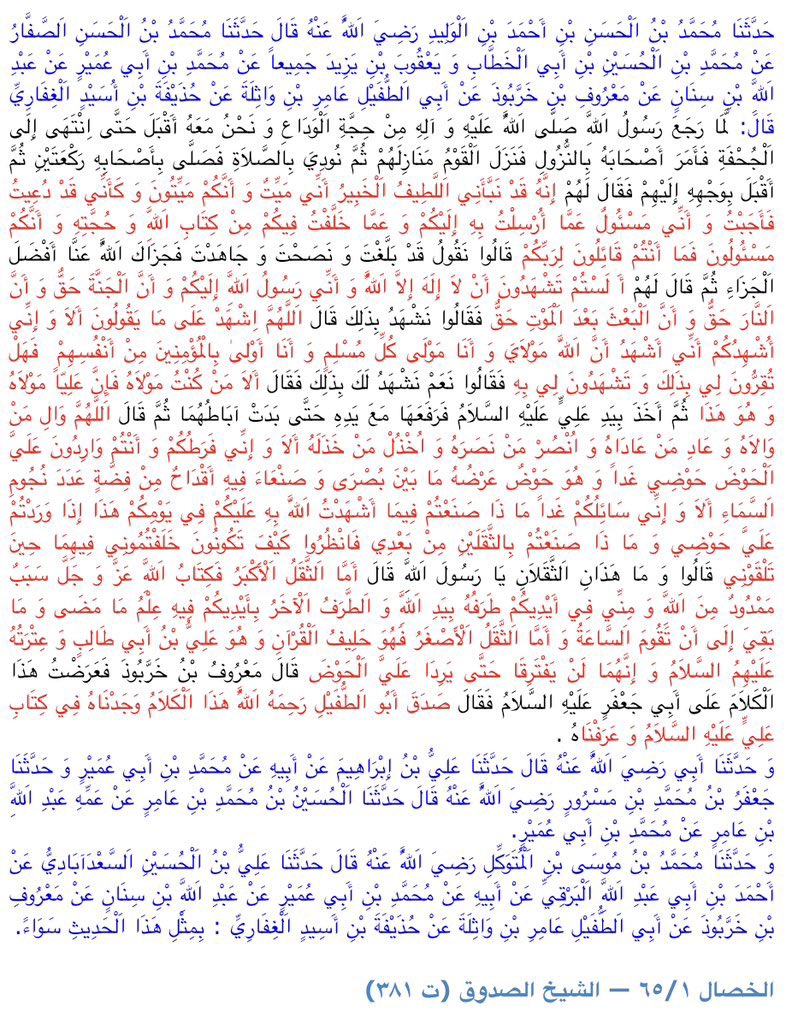 حَدَّثَنَا مُحَمَّدُ بْنُ اَلْحَسَنِ بْنِ أَحْمَدَ بْنِ اَلْوَلِيدِ رَضِيَ اَللَّهُ عَنْهُ قَالَ حَدَّثَنَا مُحَمَّدُ بْنُ اَلْحَسَنِ الصَّفَّارُ
عَنْ مُحَمَّدِ بْنِ اَلْحُسَيْنِ بْنِ أَبِي اَلْخَطَّابِ وَ يَعْقُوبَ بْنِ يَزِيدَ جَمِيعاً عَنْ مُحَمَّدِ بْنِ أَبِي عُمَيْرٍ عَنْ عَبْدِ
اَللَّهِ بْنِ سِنَانٍ عَنْ مَعْرُوفِ بْنِ خَرَّبُوذَ عَنْ أَبِي اَلطُّفَيْلِ عَامِرِ بْنِ وَاثِلَةَ عَنْ حُذَيْفَةَ بْنِ أَسَيْدٍ اَلْغِفَارِيِّ
قَالَ: لَمَّا رَجَعَ رَسُولُ اَللَّهِ صَلَّى اَللَّهُ عَلَيْهِ وَ آلِهِ مِنْ حِجَّةِ اَلْوَدَاعِ وَ نَحْنُ مَعَهُ أَقْبَلَ حَتَّى اِنْتَهَى إِلَى
اَلْجُحْفَةِ فَأَمَرَ أَصْحَابَهُ بِالنُّزُولِ فَنَزَلَ اَلْقَوْمُ مَنَازِلَهُمْ ثُمَّ نُودِيَ بِالصَّلاَةِ فَصَلَّى بِأَصْحَابِهِ رَكْعَتَيْنِ ثُمَّ
أَقْبَلَ بِوَجْهِهِ إِلَيْهِمْ فَقَالَ لَهُمْ إِنَّهُ قَدْ نَبَّأَنِي اَللَّطِيفُ اَلْخَبِيرُ أَنِّي مَيِّتٌ وَ أَنَّكُمْ مَيِّتُونَ وَ كَأَنِّي قَدْ دُعِيتُ
فَأَجَبْتُ وَ أَنِّي مَسْئُولٌ عَمَّا أُرْسِلْتُ بِهِ إِلَيْكُمْ وَ عَمَّا خَلَّفْتُ فِيكُمْ مِنْ كِتَابِ اَللَّهِ وَ حُجَّتِهِ وَ أَنَّكُمْ
مَسْئُولُونَ فَمَا أَنْتُمْ قَائِلُونَ لِرَبِّكُمْ قَالُوا نَقُولُ قَدْ بَلَّغْتَ وَ نَصَحْتَ وَ جَاهَدْتَ فَجَزَاكَ اَللَّهُ عَنَّا أَفْضَلَ
اَلْجَزَاءِ ثُمَّ قَالَ لَهُمْ أَ لَسْتُمْ تَشْهَدُونَ أَنْ لاَ إِلَهَ إِلاَّ اَللَّهُ وَ أَنِّي رَسُولُ اَللَّهِ إِلَيْكُمْ وَ أَنَّ اَلْجَنَّةَ حَقٌّ وَ أَنَّ
اَلنَّارَ حَقٌّ وَ أَنَّ اَلْبَعْثَ بَعْدَ اَلْمَوْتِ حَقٌّ فَقَالُوا نَشْهَدُ بِذَلِكَ قَالَ اَللَّهُمَّ اِشْهَدْ عَلَى مَا يَقُولُونَ أَلاَ وَ إِنِّي
أُشْهِدُكُمْ أَنِّي أَشْهَدُ أَنَّ اَللَّهَ مَوْلاَيَ وَ أَنَا مَوْلَى كُلِّ مُسْلِمٍ وَ أَنَا أَوْلىٰ بِالْمُؤْمِنِينَ مِنْ أَنْفُسِهِمْ فَهَلْ
تُقِرُّونَ لِي بِذَلِكَ وَ تَشْهَدُونَ لِي بِهِ فَقَالُوا نَعَمْ نَشْهَدُ لَكَ بِذَلِكَ فَقَالَ أَلاَ مَنْ كُنْتُ مَوْلاَهُ فَإِنَّ عَلِيّاً مَوْلاَهُ
وَ هُوَ هَذَا ثُمَّ أَخَذَ بِيَدِ عَلِيٍّ عَلَيْهِ السَّلاَمُ فَرَفَعَهَا مَعَ يَدِهِ حَتَّى بَدَتْ آبَاطُهُمَا ثُمَّ قَالَ اَللَّهُمَّ وَالِ مَنْ
وَالاَهُ وَ عَادِ مَنْ عَادَاهُ وَ اُنْصُرْ مَنْ نَصَرَهُ وَ اُخْذُلْ مَنْ خَذَلَهُ أَلاَ وَ إِنِّي فَرَطُكُمْ وَ أَنْتُمْ وَارِدُونَ عَلَيَّ
اَلْحَوْضَ حَوْضِي غَداً وَ هُوَ حَوْضٌ عَرْضُهُ مَا بَيْنَ بُصْرَى وَ صَنْعَاءَ فِيهِ أَقْدَاحٌ مِنْ فِضَّةٍ عَدَدَ نُجُومِ
اَلسَّمَاءِ أَلاَ وَ إِنِّي سَائِلُكُمْ غَداً مَا ذَا صَنَعْتُمْ فِيمَا أَشْهَدْتُ اَللَّهَ بِهِ عَلَيْكُمْ فِي يَوْمِكُمْ هَذَا إِذَا وَرَدْتُمْ
عَلَيَّ حَوْضِي وَ مَا ذَا صَنَعْتُمْ بِالثَّقَلَيْنِ مِنْ بَعْدِي فَانْظُرُوا كَيْفَ تَكُونُونَ خَلَفْتُمُونِي فِيهِمَا حِينَ
تَلْقَوْنِي قَالُوا وَ مَا هَذَانِ اَلثَّقَلاَنِ يَا رَسُولَ اَللَّهِ قَالَ أَمَّا اَلثَّقَلُ اَلْأَكْبَرُ فَكِتَابُ اَللَّهِ عَزَّ وَ جَلَّ سَبَبٌ
مَمْدُودٌ مِنَ اَللَّهِ وَ مِنِّي فِي أَيْدِيكُمْ طَرَفُهُ بِيَدِ اَللَّهِ وَ اَلطَّرَفُ اَلْآخَرُ بِأَيْدِيكُمْ فِيهِ عِلْمُ مَا مَضَى وَ مَا
بَقِيَ إِلَى أَنْ تَقُومَ اَلسَّاعَةُ وَ أَمَّا اَلثَّقَلُ اَلْأَصْغَرُ فَهُوَ حَلِيفُ اَلْقُرْآنِ وَ هُوَ عَلِيُّ بْنُ أَبِي طَالِبٍ وَ عِتْرَتُهُ
عَلَيْهِمُ السَّلاَمُ وَ إِنَّهُمَا لَنْ يَفْتَرِقَا حَتَّى يَرِدَا عَلَيَّ اَلْحَوْضَ قَالَ مَعْرُوفُ بْنُ خَرَّبُوذَ فَعَرَضْتُ هَذَا
اَلْكَلاَمَ عَلَى أَبِي جَعْفَرٍ عَلَيْهِ السَّلاَمُ فَقَالَ صَدَقَ أَبُو اَلطُّفَيْلِ رَحِمَهُ اَللَّهُ هَذَا اَلْكَلاَمُ وَجَدْنَاهُ فِي كِتَابِ
عَلِيٍّ عَلَيْهِ السَّلاَمُ وَ عَرَفْنَاهُ .
وَ حَدَّثَنَا أَبِي رَضِيَ اَللَّهُ عَنْهُ قَالَ حَدَّثَنَا عَلِيُّ بْنُ إِبْرَاهِيمَ عَنْ أَبِيهِ عَنْ مُحَمَّدِ بْنِ أَبِي عُمَيْرٍ وَ حَدَّثَنَا
جَعْفَرُ بْنُ مُحَمَّدِ بْنِ مَسْرُورٍ رَضِيَ اَللَّهُ عَنْهُ قَالَ حَدَّثَنَا اَلْحُسَيْنُ بْنُ مُحَمَّدِ بْنِ عَامِرٍ عَنْ عَمِّهِ عَبْدِ اَللَّهِ
بْنِ عَامِرٍ عَنْ مُحَمَّدِ بْنِ أَبِي عُمَيْرٍ.
وَ حَدَّثَنَا مُحَمَّدُ بْنُ مُوسَى بْنِ اَلْمُتَوَكِّلِ رَضِيَ اَللَّهُ عَنْهُ قَالَ حَدَّثَنَا عَلِيُّ بْنُ اَلْحُسَيْنِ اَلسَّعْدَآبَادِيُّ عَنْ
أَحْمَدَ بْنِ أَبِي عَبْدِ اَللَّهِ اَلْبَرْقِيِّ عَنْ أَبِيهِ عَنْ مُحَمَّدِ بْنِ أَبِي عُمَيْرٍ عَنْ عَبْدِ اَللَّهِ بْنِ سِنَانٍ عَنْ مَعْرُوفِ
بْنِ خَرَّبُوذَ عَنْ أَبِي اَلطُّفَيْلِ عَامِرِ بْنِ وَاثِلَةَ عَنْ حُذَيْفَةَ بْنِ أَسِيدٍ اَلْغِفَارِيِّ : بِمِثْلِ هَذَا اَلْحَدِيثِ سَوَاءً.
الخصال ٦٥/١ — الشيخ الصدوق (ت ٣٨١)